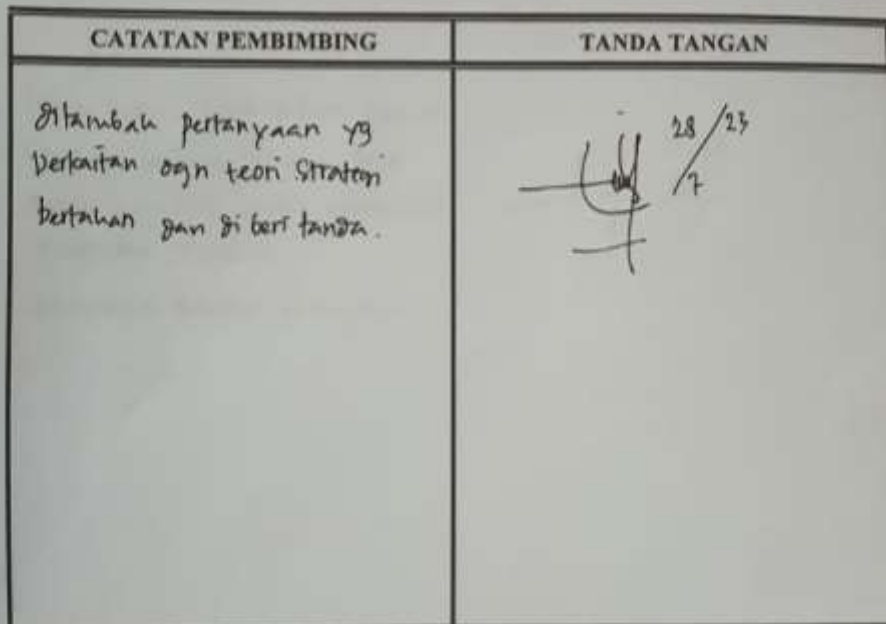 CATATAN PEMBIMBING
TANDA TANGAN
ditambah pertanyaan yg
berkaitan dgn teori Strategi
bertahan dan di beri tanda.
28/23
/7